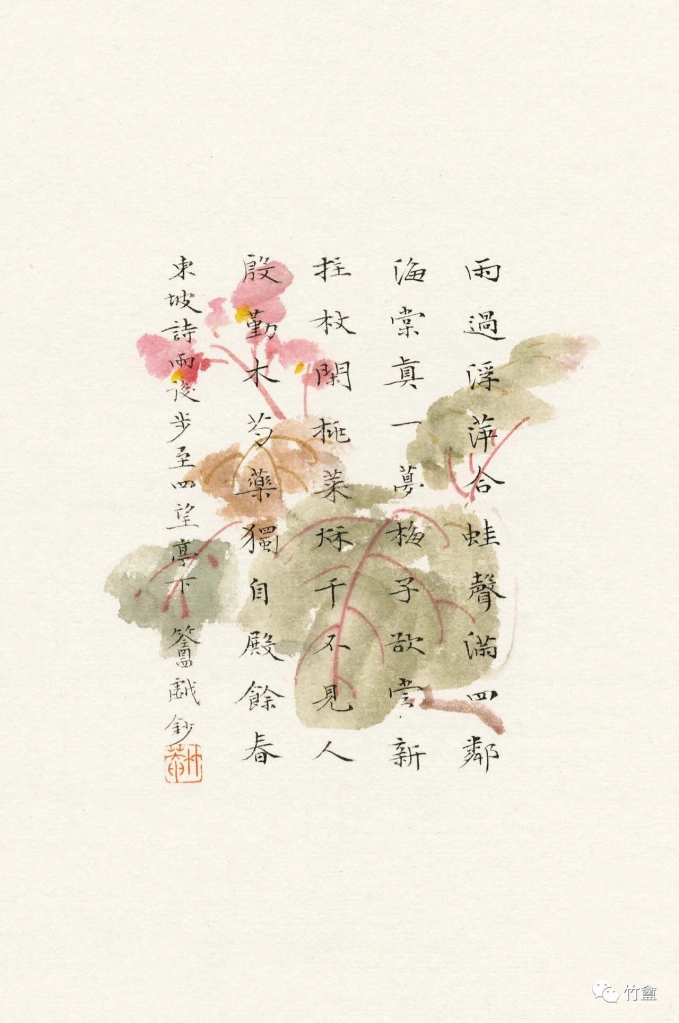 雨過浮萍合蛙聲滿四鄰
海棠真一夢梅子欲嘗新
拄杖閑挑菜秋千不見人
殷勤木芍藥獨自殿餘春
東坡詩雨後步至四望亭下 簠戲鈔
竹盫